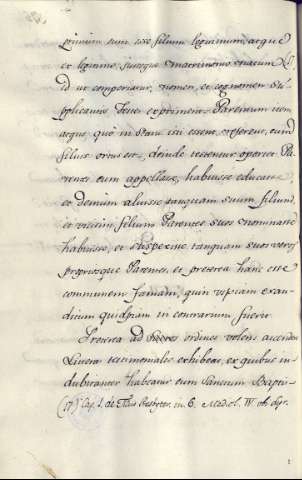 quinium eum esse filium legitimum, atque
et legitimo, justoque matrimonio natum. Q.
id ut comperiatur, nomen, et cognomen su-
pplicantis Breve exprimens Parentum nom
aeque, quo in statu isti essent, refertur, cum
filius ortus est; deinde testentur oportet Pa-
rentes eum appellasse, habuisse educasse,
et demum aluisse tanquam suum filium,
et vicisim filium Parentes suos nominasse
habuisse, et suspexisse tanquam suos veros
propriosque Parentes, et praeterea hanc esse
communem famam, quin uspiam exau-
ditum quidpiam in contrarium fuerit
Praeterea ad Sacros ordines volens ascendere
Litterae testimoniales exhibeat, ex quibus in-
dubitanter habeatur eum sanctum Baptis-
(17) Cap. 1. de Filiis Presbyter. in 6.